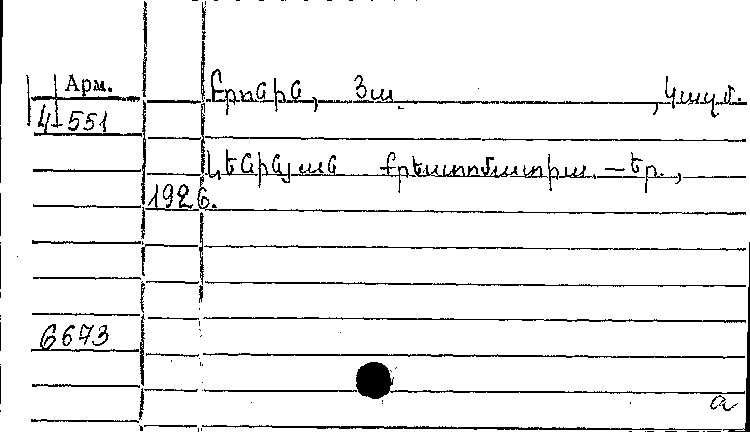 Арм.
Յա. , կազմ.
4-551
Լենինյան քրեստոմատիա. — Եր.,
1926.
6673
a